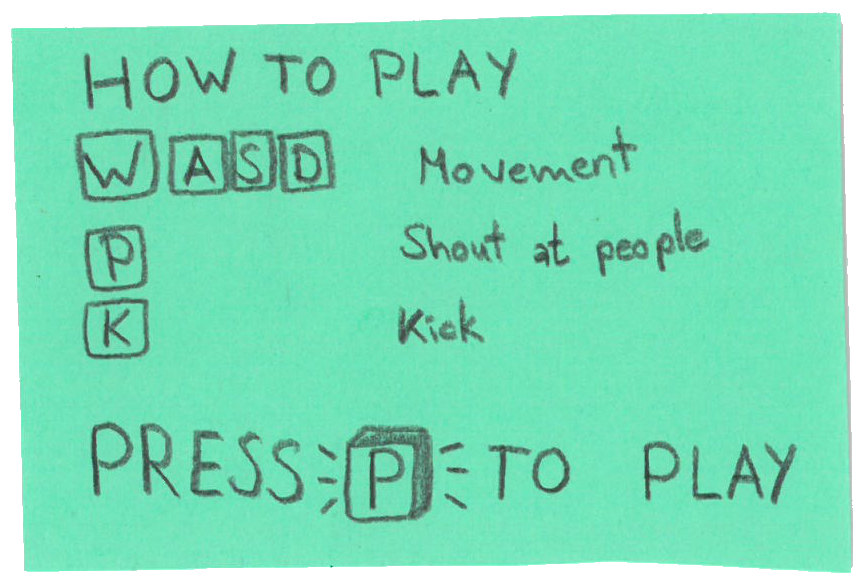 HOW TO PLAY
W A S D Movement
P Shout at people
K Kick
PRESS P TO PLAY